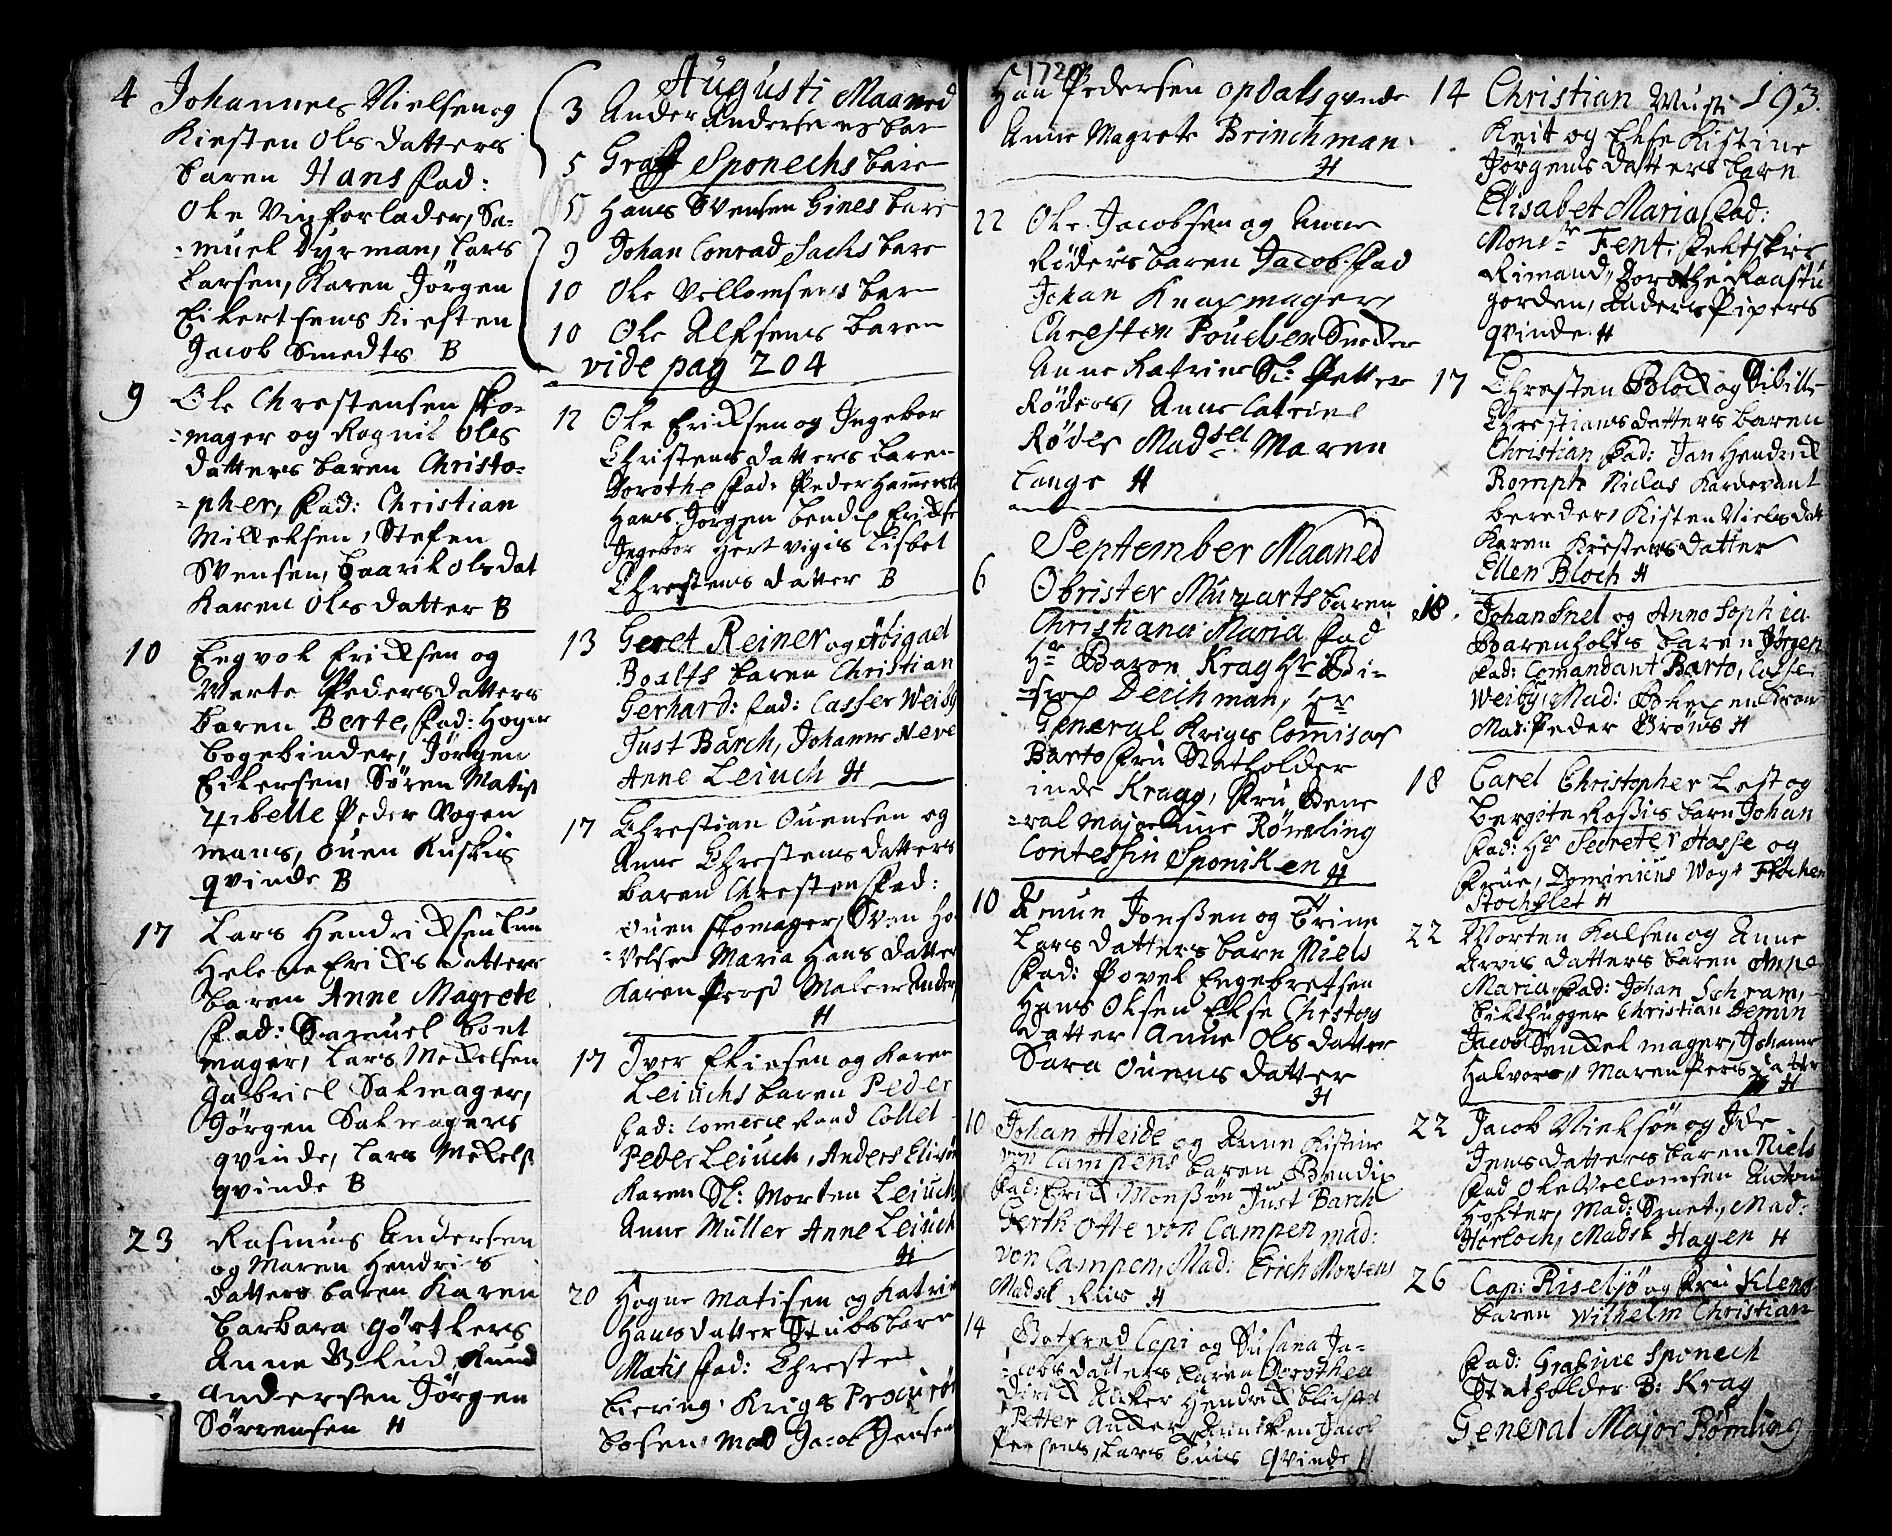 4 Johannes Nielsen og
Kirsten Ols datters
baren Hans fad:
Ole Vinforlader, Sa-
=muel Dyrman, Lars
Larsen, Karen Jörgen
Eikertsens Kiesten
Jacob Smedts B
9 Ole Chrestensen sko-
=mager og Ragnil Ols
datters baren Christo-
=pher, fad: Christian
Mikkelsen, Stefen
Svensen, Gaarik Olsdat
Karen Ols datter B
10 Engvol Ericksen og
Marte Pedersdatters
baren Berte, fad: Hogen
bogebinder, Jörgen
Eikersen, Sören Matiß
Zibelle Peder Vogen
mans, Ouen Kuskis
qvinde B
17 Lars Hendricksen Lun
Helene Ericks datters
baren Anne Magrete
fad: Samuel bont
mager, Lars Mekelsen
Gabriel Sakmager,
Jörgen Sakmagers
qvinde, Lars Mekelß
qvinde B
23 Rasmus Andersen
og Maren Hendrics
datters baren Karen
barbara Görtlers
Anne Blud, Knud
Andersen Jörgen
Sörrensen H
Augusti Maaned
3 Anders Andersens bar
5 Graff Sponechs bare
5 Hans Svensen Gines bare
9 Johan Conrad Sachs bare
10 Ole Vellomsens bar
10 Ole Alfsens baren
vide pag 204
12 Ole Ericksen og Ingebor
Christens datters baren
Dorothe fad: Peder Hamersb
Hans Jörgen bendix Erickse
Ingebor Hertvigis Lisbet
Chrestens datter B
13 Geret Reiner og Abigael
Boalts baren Christian
Gerhard: fad: Casser Weiby
Just Barch, Johanne Neve
Anne Leiuch H
17 Chrestian Ouensen og
Anne Chrestens datters
baren Chresten fad:
Ouen skomager, Sven Ho
=velsen Maria Hans datter
Karen Persd Maler Anders
H
17 Iver Elieсsen og Karen
Leiuchs baren Peder
fad: Comerce Raad Collet
Peder Leiuch, Anders Elisön
Karen Sl: Morten Leiuchs
Anne Müller Anne Leiuch
H
20 Hogne Matisen og Katrin
Hansdatter Stubs barn
Matis fad: Chresten
Eiering Krigs Procurör
bosen mad Jacob Jensen
1720
Han Pedersen Opdals qvinde
Anne Magrete Brinchman
H
22 Ole Jacobsen og Anne
Röders baren Jacob fad
Johan Knapmager
Chresten Pouelsen Sneder
Anne Katrine Sl: Petter
Röders, Anne Catrine
Röder Madsel Maren
Lange H
September Maaned
6 Obrister Münzarts baren
Christiana Maria fad
Hr Baron Krag Hr Bi-
=scop Deichman, Hr
General Krigs Comisar
Barto Fru Statholder
inde Kragg, Fru Gene
=ral majorinne Römling
Contessin Sponiken H
10 Amun Jonßen og Trine
Lars datters barn Niels
fad: Povel Engebretsen
Hans Olsen Else Christens
datter Anne Ols datter
Sara Ouens datter
H
10 Johan Heide og Anne Kistine
von Campens baren Bendix
fad: Erick Monßön Just Barch
Gerth Otte von Campen mad:
von Campen, Mad: Erich Monsens
Madsel Rins H
14 Gotfred Copi og Susana Ja-
=cobs datters baren Dorothea
Dirick Anker Hendrick
Petter Anker Anneken Jacob
Persens, Lars Tuns Qvinde H
193.
14 Christian Musi
Knit og Else Kistine
Jörgens datters barn
Elisabet Maria fad:
Monsr Fent. Feltskier
Rimand, Dorothe Raastu
gorden, Anders Pipers
qvinde. H
17 Chresten Block og Sibille
Chrestians datters baren
Christian fad: Jan Hendrick
Rompte Niclas Karderant
bereder, Kisten Niels datt
Karen Krestens datter
Ellen Bloch H
18. Johan Snel og Anno Sophia
Barenholts baren Jörgen
fad: Comandant Barto, Casse
Weiby, Mad:
Mad: Peder Gröns H
18 Carel Christopher Lest og
bergite Roßis barn Johan
fad: Hr Secreter Hasse og
Frue, Dominicus Wogt Fröchen
Stochflet H
22 Morten Kalsen og Anne
Arvis datters baren Anne
Maria fad: Johan Schram,
bilthugger Christian Demin
Jacob Senkel mager, Johanne
Halvors, Maren Pers datter
H
22 Jacob Nielsön og Ide
Jens datters baren Niels
fad Ole Vellomsen Antoni
Hoster, Mad: Smet, Mad:
Horloch, Madsl Hagen H
26 Cap: Riseljö og fru Klens
baren Wilhelm Christian
fad: Grafinne Sponech
Statholder B: Krag
General Major Römling